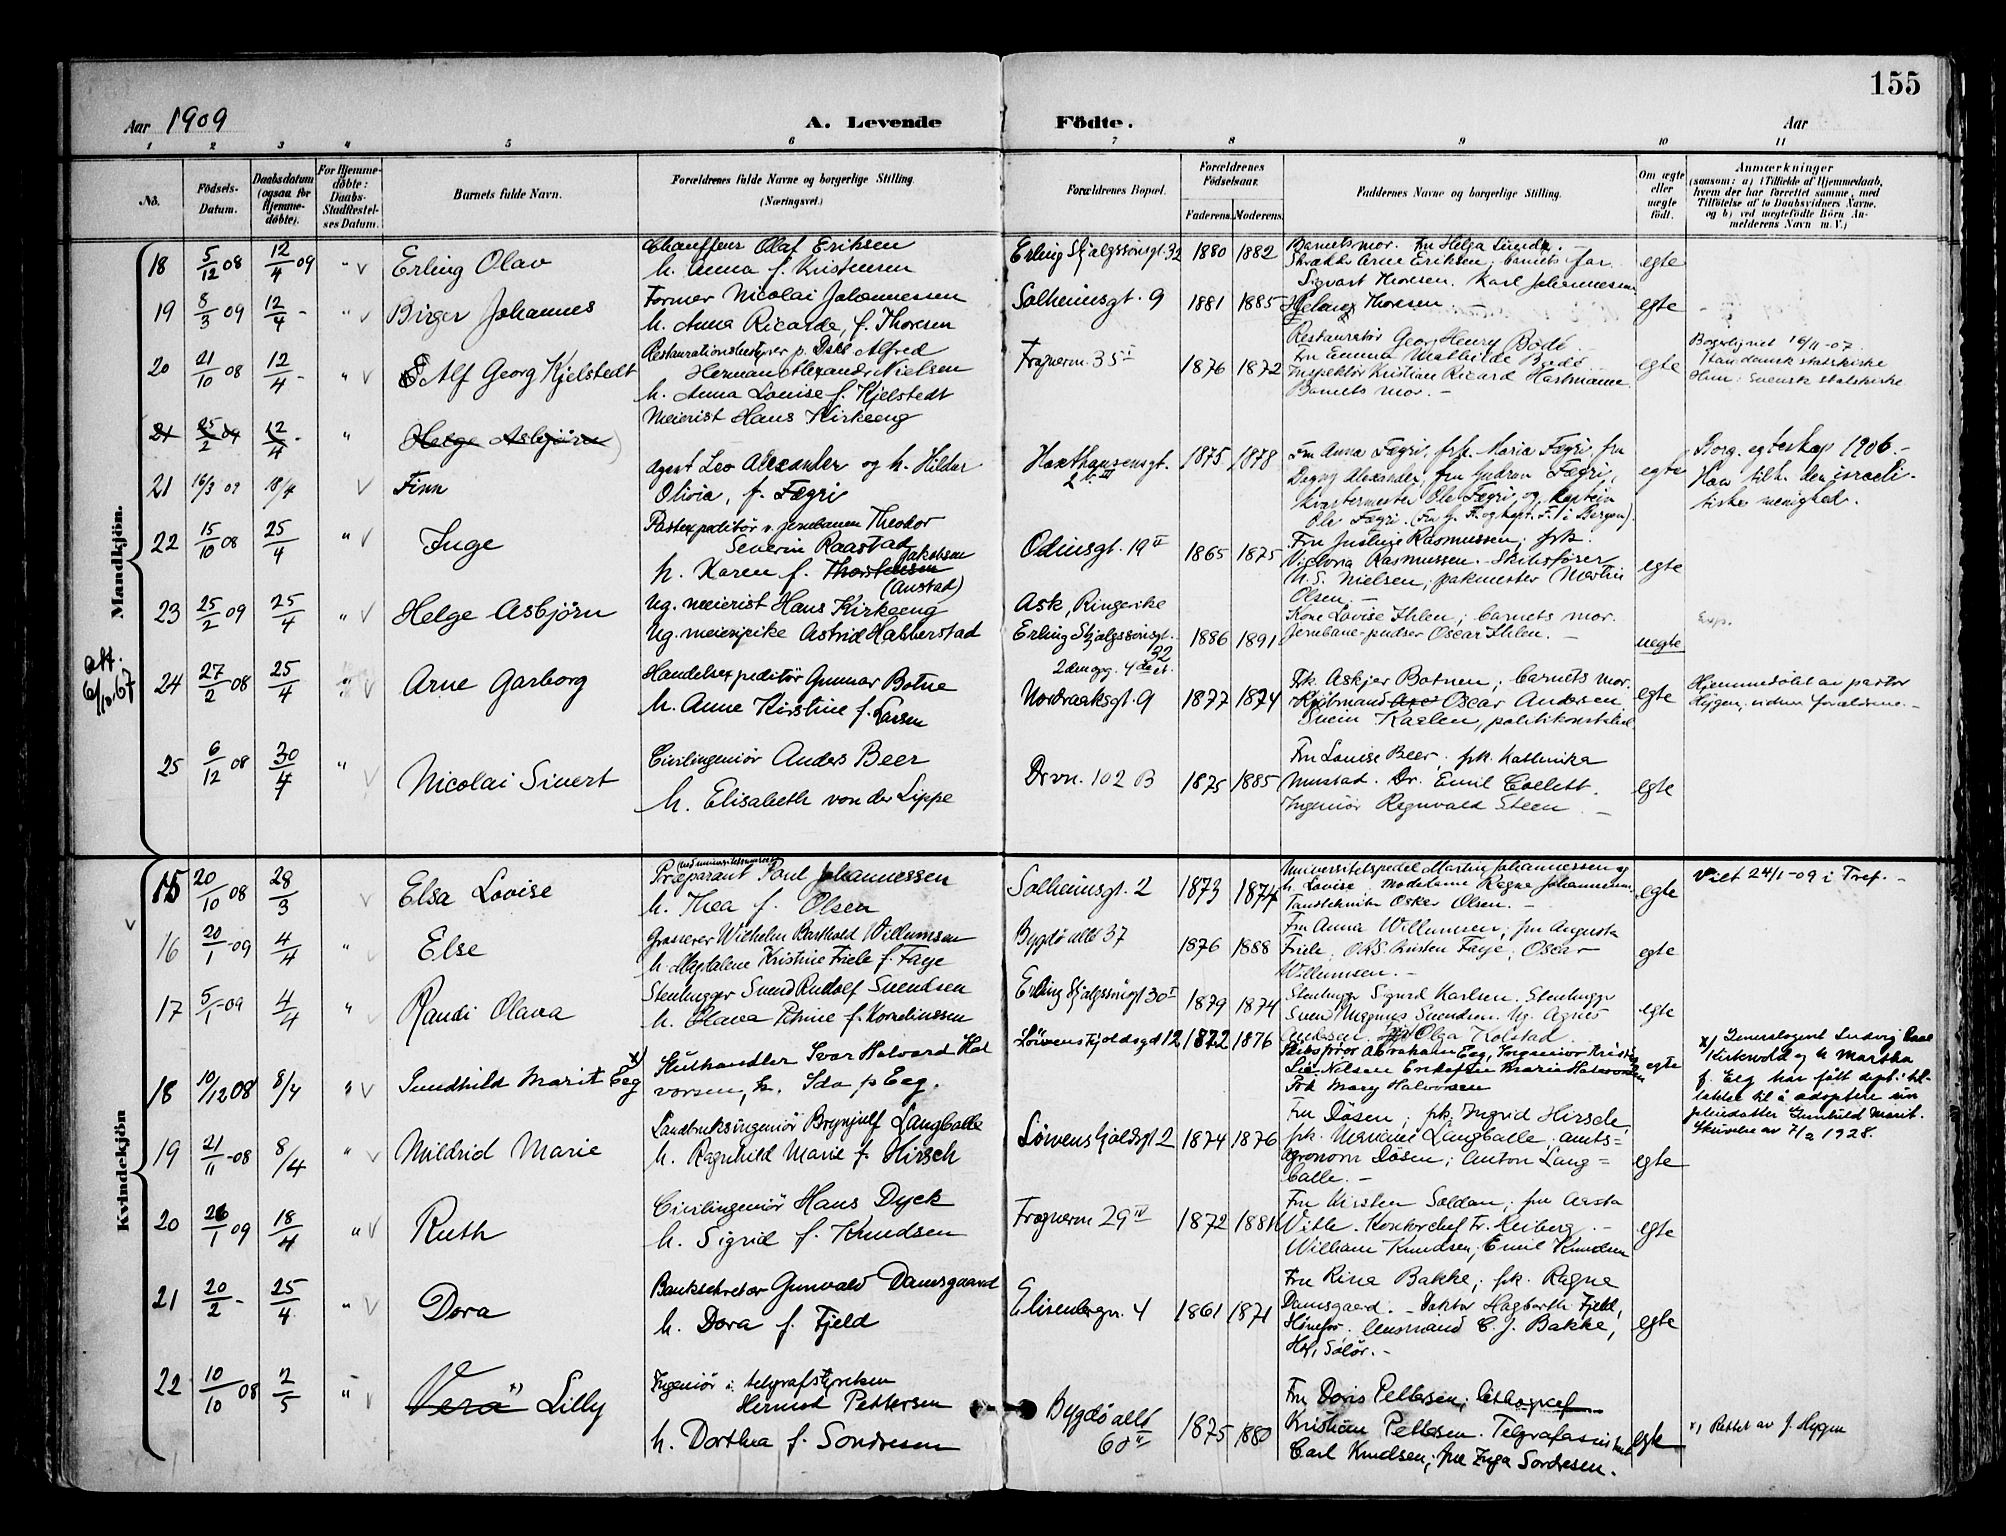 155
Aar 1909
A. Levende Födte.
Aar
1 2 3 4 5 6 7 8 9 10 11
No.
Födsels-Datum.
Daabsdatum (ogsaa for Hjemme-döbte).
For Hjemme-döbte: Daabs-Stadfæstel-ses Datum.
Barnets fulde Navn.
Forældrenes fulde Navne og borgerlige Stilling.
(Næringsvei.)
Forældrenes Bopæl.
Forældrenes Födselsaar.
Faderens. Moderens.
Faddernes Navne og borgerlige Stilling.
Om ægte eller uægte födt.
Anmærkninger
(saasom: a) i Tilfælde af Hjemmedaab, hvem der har forrettet samme, med Tilföielse af to Daabsvidners Navne, og b) ved uegtefödte Börn Anmelderens Navn m.V.)
Mandkjön.
att. 6/10 67
18 5/12 08 12/4 09 " v Erling Olav
Chauffeur Olaf Eriksen
h. Anna f. Kristensen
Erling Skjalgssönsgt. 32 1880 1882
Barnets mor. Fru Helga Lunde. -
Skrædder Arne Eriksen; barnets far.
egte
19 8/3 09 12/4 - " v Birger Johannes
Former Nicolai Johannessen
h. Anna Ricarda, f. Thoresen
Solheimsgt. 9 1881 1885
Sigvart Thoresen. Karl Johannessen
Thoresen. -
egte
20 21/10 08 12/4 - " v Alf Georg Kjelstedt
Restaurationsbestyrer p. Dske Alfred
Herman Alexander Nielsen
h. Anna Louise f. Kjelstedt
Frognerv. 35 II 1876 1872
Restauratör Georg Henry Bodö -
Fru Emma Mathilde Bodö -
Inspektör Kristian Ricard Hartmann
Barnets mor. -
egte
Borgerligviet 16/11-07.
Han dansk statskirke
Hun: Svensk statskirke
21 25/2 09 12/4 - " Helge Asbjörn
Meierist Hans Kirkeeng
21 16/3 09 18/4 v Finn
Agent Leo Alexander og h. Hildur
Olivia, f. Fægri
Haxthausensgt. 2 b. III 1875 1878
Fru Anna Fægri, frk. Maria Fægri, fru
Dagny Alexander, fru Gudrun Fægri,
kvartermester Ole Fægri, og kaptein
Ole Fægri. (Fru G. F. og kapt. F. i Bergen).
egte
Borg. egteskap 1906. -
Han tilh. den israelitiske menighed.
22 15/10 08 25/4 " v Inge
Pakexpeditör v. jernbanen Theodor
Severin Raastad
h. Karen f. Thorstensen Jakobsen
(Anstad)
Odinsgt. 19 II 1865 1875
Fru Justine Rasmussen; frk.
Victoria Rasmussen. Skibsförer
N. S. Nielsen; pakmester Martin
Olsen. -
egte
23 25/2 09 25/4 " v Helge Asbjörn
Ug. meierist Hans Kirkeeng
Ug. meieripike Astrid Halberstad
Ask, Ringerike
Erling Skjalgssönsgt. 32
2den opg. 4de et. 1886 1891
Kone Lovise Ihlen; barnets mor.
Jernbane-pudser Oscar Ihlen. -
uegte
Exp.
24 27/2 08 25/4 v Arne Garborg
Handelsexpeditör Gunnar Botne
h. Anne Kirstine f. Larsen
Nordraaksgt. 9 1877 1874
Frk. Askjer Botnen; barnets mor.
Kjöbmand Oscar Andersen
Svein Kaslen, politikonstabel
egte
Hjemmedöbt av pastor
Hygen, vidner forældrene. -
25 6/12 08 30/4 " v Nicolai Sivert
Civilingeniör Anders Beer
h. Elisabeth von der Lippe
Drvn. 102 B 1875 1885
Fru Louise Beer; frk. Kathinka
Mustad. Dr. Emil Collett.
Ingeniör Regnvald Steen. -
egte
Kvindekjön
v
15 20/10 08 28/3 v Elsa Lovise
Præparant Paul Johannessen
h. Thea f. Olsen
Solheimsgt. 2 1873 1874
Universitetspedel Martin Johannessen og
h. Lovise. Modelöine Ragna Johannessen
Tandtekniker Oskar Olsen. -
egte
Viet 24/1-09 i Tref. -
16 20/1 -09 4/4 " v Else
Grosserer Wilhelm Barthold Willumsen
h. Magdalene Kristine Friele f. Faye
Bygdö allé 37 1876 1888
Fru Anna Willumsen; fru Augusta
Friele; ORS. Kristen Faye; Oscar
Willumsen. -
egte
17 5/1 -09 4/4 " v Randi Olava
Stenhugger Svend Rudolf Svendsen
h. Olava Petrine f. Kornelinssen
Erling Skjalgssönsgt 30 I 1879 1874
Stenhugger Sigurd Karlsen. Stenhugger
Svend Magnus Svendsen. Ug. Agnes
Andersen. Olga Kolstad.
egte
18 10/12 08 8/4 " v Gundhild Marit Eeg x)
Skibshandler Ivar Halvard Hal
vorsen, h. Ida f Eeg.
Löwenskjoldsgt 12 1872 1876
Skibsförer Abraham Eeg, Ingeniör Kristian
Lie-Nielsen Enkefru Maria Halvorsen
Frk Mary Halvorsen
egte
x) Generalagent Ludvig
Kirkevold og h Martha
f. Eeg har fått dept.s til-
latelse til å adoptere sin
pleiedatter Gunhild Marit.
Skrivelse av 7/2 1928.
19 21/11 -08 8/4 " v Mildrid Marie
Landbruksingeniör Brynjulf Langballe
h. Ragnhild Marie f. Hirsch
Lövenskjoldsgt 2 1874 1876
Fru Dösen; frk. Ingrid Hirsch;
frk. Marie Langballe. Amts-
agronom Dösen; Anton Lang=
balle. -
egte
20 26/1 09 18/4 " v Ruth
Civilingeniör Hans Dyck
h. Sigrid f. Knudsen
Frognerv 29 IV 1872 1881
Fru Kirsten Soldan; fru Aasta
Vitle. Kontorchef Fr. Keiberg. -
William Knudsen; Emil Knudsen
egte
21 20/2 - 25/4 " v Dora
Banksekretær Gunvald Damsgaard
h. Dora f. Fjeld
Elisenbergv. 4 1861 1871
Fru Rina Bakke; frk. Ragna
Damsgaard. - Doktor Hagbarth Fjeld,
Hönefos. Lensmand C. J. Bakke,
Hof, Solör. -
egte
22 10/10 08 2/5 " v Vera x) Lilly
Ingeniör i telegrafstyrelsen
Hermod Pettersen
h. Dorthea f. Sondresen
Bygdö allé 60 II 1875 1880
Fru Doris Pettersen; lithograf
Kristian Pettersen. Telgrafassistent
Carl Knudsen; fru Inga Sondresen.
egte
x) Rettet av J. Hygen